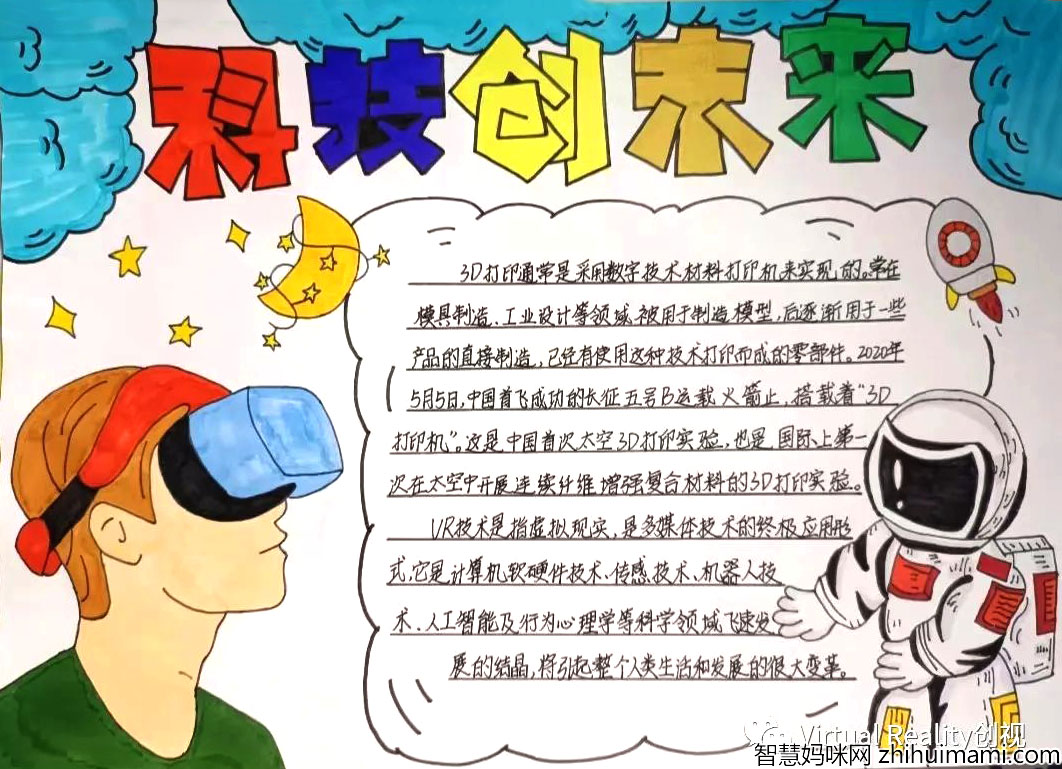 科技创未来
3D打印通常是采用数字技术材料打印机来实现的。常在
模具制造、工业设计等领域被用于制造模型，后逐渐用于一些
产品的直接制造，已经有使用这种技术打印而成的零部件。2020年
5月5日，中国首飞成功的长征五号B运载火箭上，搭载着“3D
打印机”。这是中国首次太空3D打印实验，也是国际上第一
次在太空中开展连续纤维增强复合材料的3D打印实验。
VR技术是指虚拟现实，是多媒体技术的终极应用形
式，它是计算机软硬件技术、传感技术、机器人技
术、人工智能及行为心理学等科学领域飞速发
展的结晶，将引起整个人类生活和发展的很大变革。
Virtual Reality创视
智慧妈咪网 zhihuimami.com